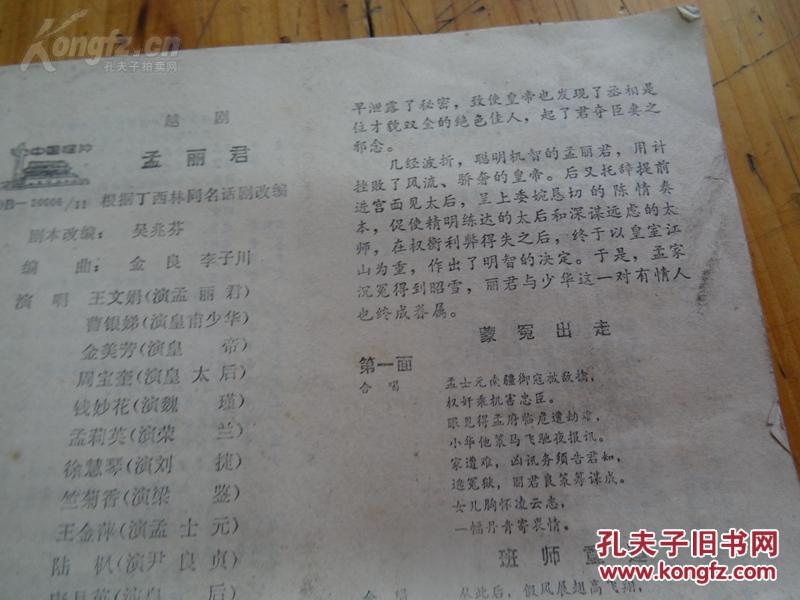 Kongfz.cn
孔夫子拍卖网
越剧
中国唱片
孟丽君
根据丁西林同名话剧改编
剧本改编：吴兆芬
编曲：金良 李子川
演唱 王文娟(演孟丽君)
曹银娣(演皇甫少华)
金美芳(演皇帝)
周宝奎(演皇太后)
钱妙花(演魏瑾)
孟莉英(演荣兰)
徐慧琴(演刘捷)
竺菊香(演梁鉴)
王金萍(演孟士元)
陆枫(演尹良贞)
早泄露了秘密，致使皇帝也发现了丞相是
位才貌双全的绝色佳人，起了君夺臣妻之
邪念。
几经波折，聪明机智的孟丽君，用计
挫败了风流、骄奢的皇帝。后又托辞提前
进宫面见太后，呈上委婉恳切的陈情奏
本，促使精明练达的太后和深谋远虑的太
师，在权衡利弊得失之后，终于以皇室江
山为重，作出了明智的决定。于是，孟家
沉冤得到昭雪，丽君与少华这一对有情人
也终成眷属。
蒙冤出走
第一面
合唱 孟士元南疆御寇被敌擒，
权奸乘机害忠臣。
眼见得孟府临危遭劫难，
小华他策马飞驰夜报讯。
家遭难，凶讯务须告君知，
逃冤狱，丽君良策筹谋成。
女儿胸怀凌云志，
一幅丹青寄衷情。
班师
从此后，假凤展翅高飞翔，
孔夫子旧书网
www.kongfz.com